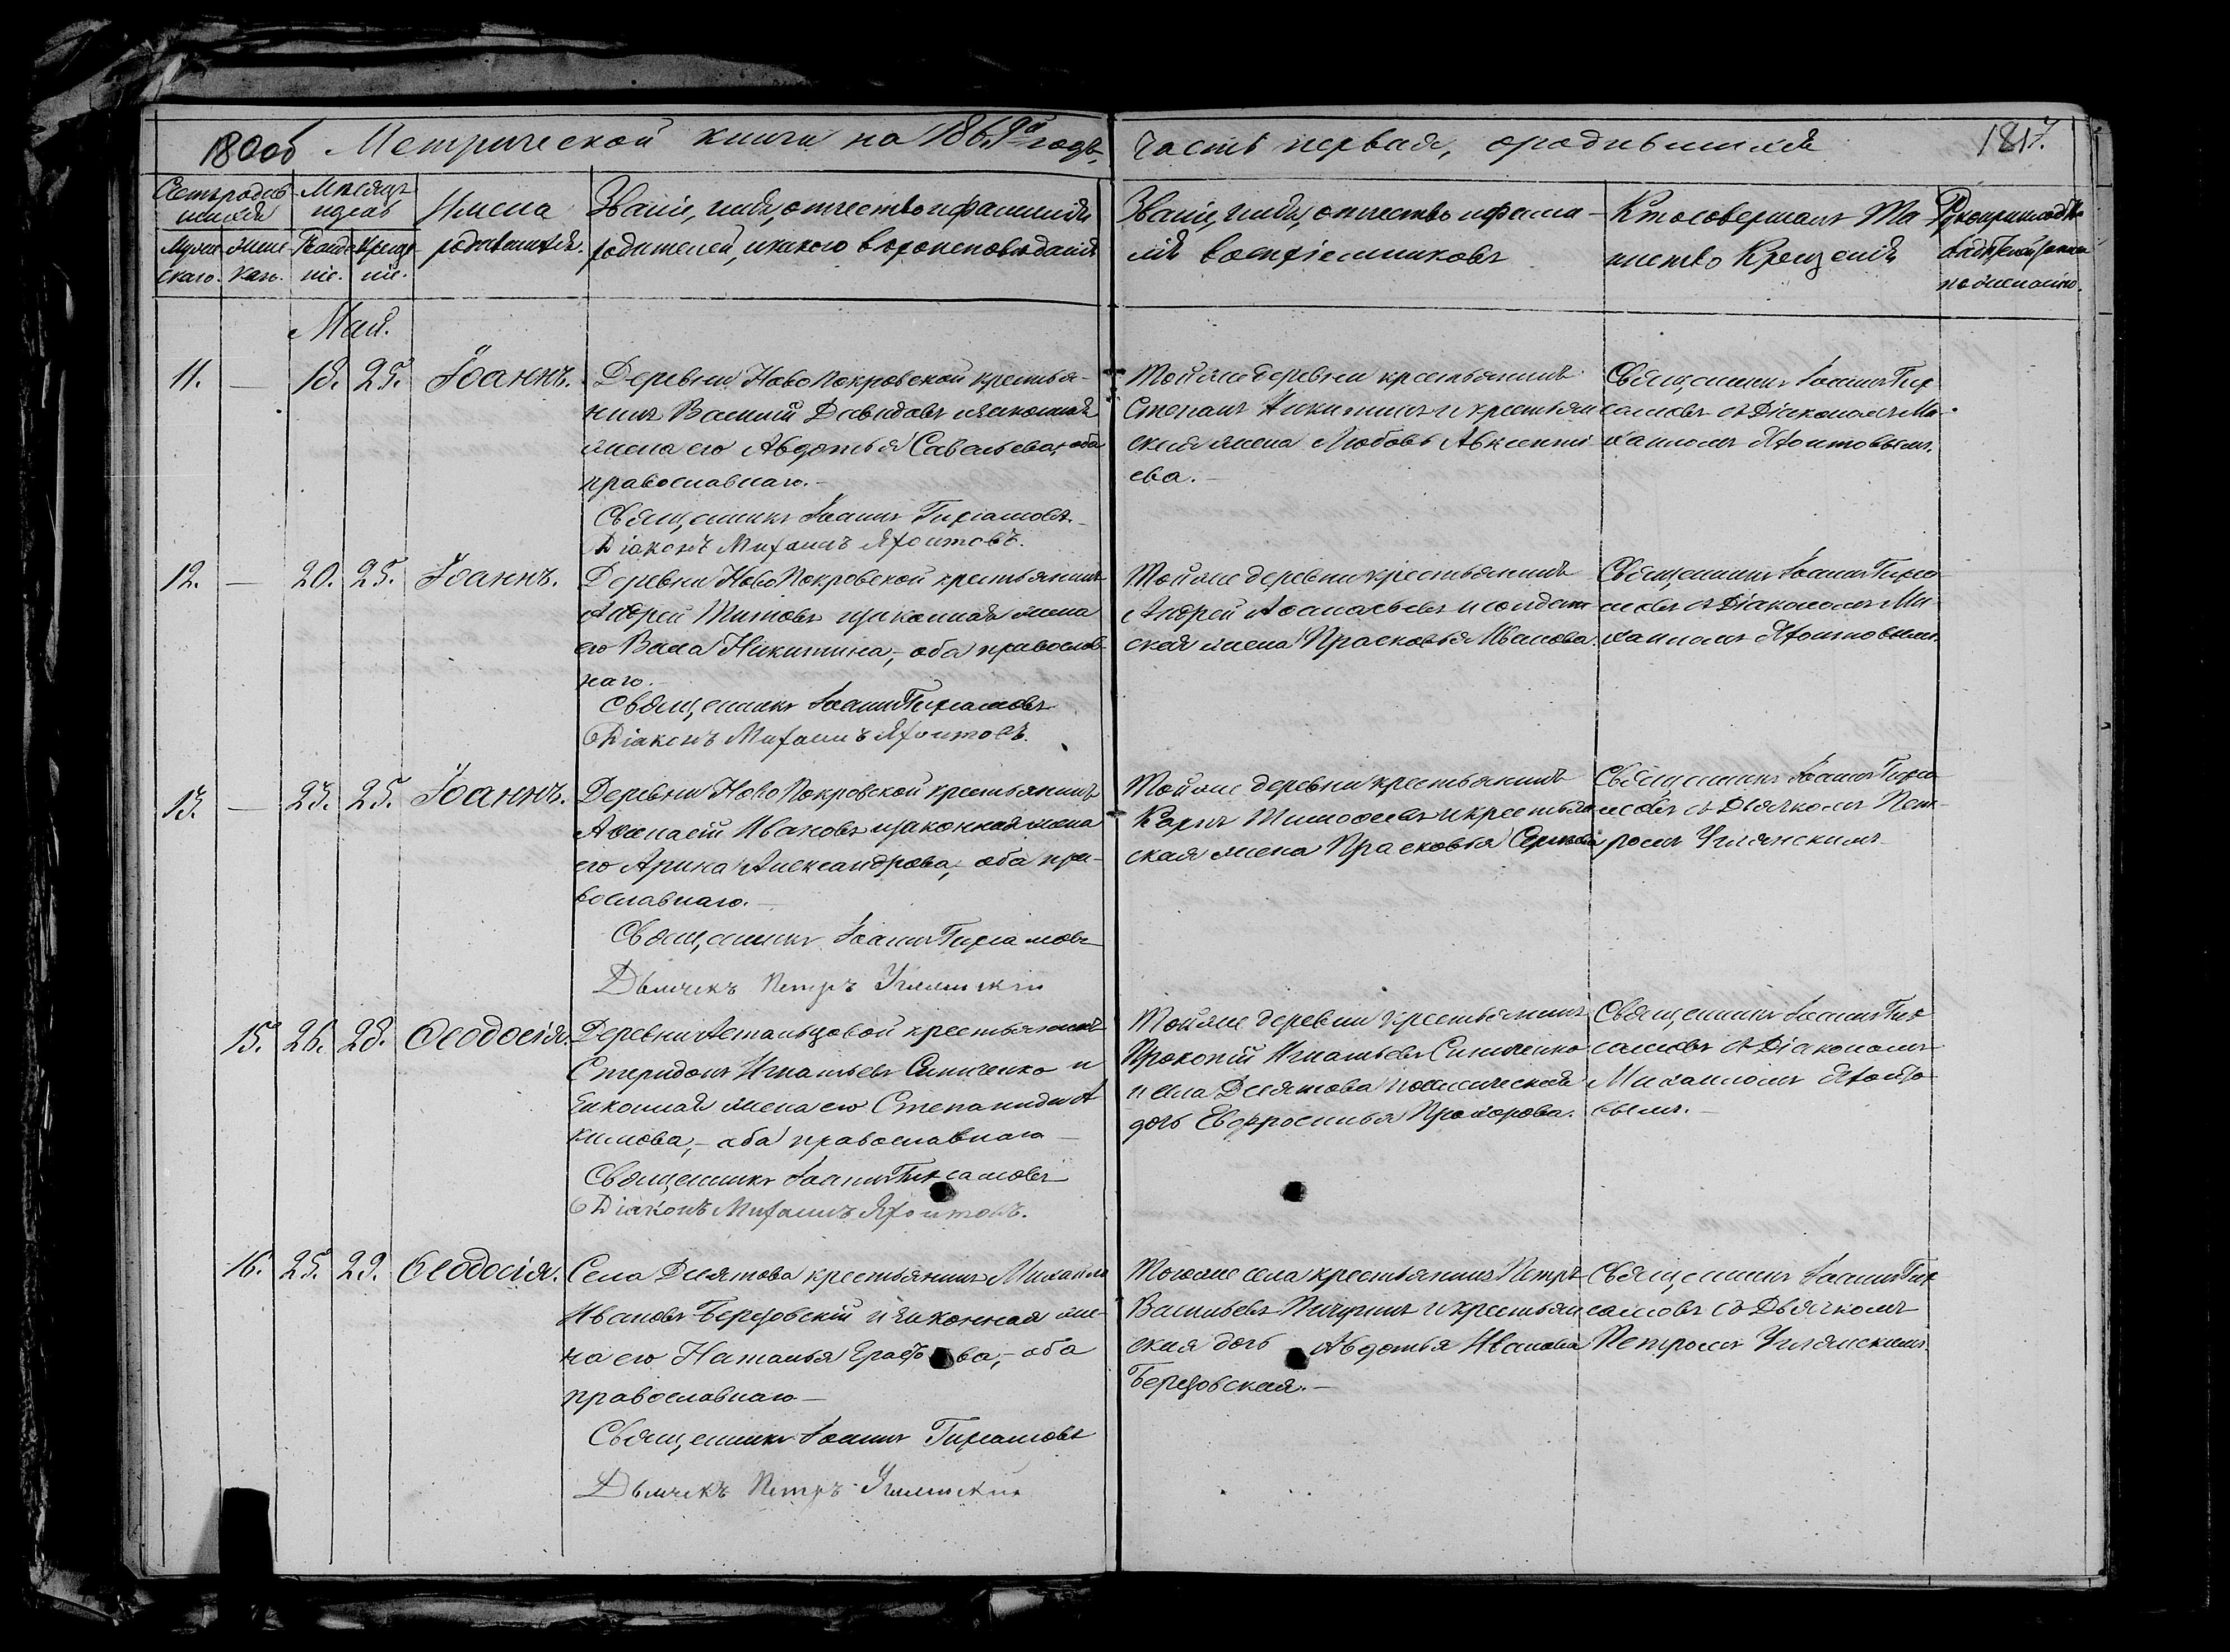 180об Метрической книги на 1869й годъ,
часть первая, о родившихся
181
Счетъ родив
шихся
Мѣсяцъ
и день
Имена
родившихся.
Муже
скаго.
Жен
скаго.
Рожде
ніе.
Креще
ніе.
Званіе, имя, отчество и фамилія
родителей, и какого вѣроисповѣданія
Званіе, имя, отчество и фами-
лія воспріемниковъ
Кто совершалъ Та
инство Крещенія
Рукоприкладство
по желанію.
Май.
11. — 18. 25. Іоаннъ.
Деревни Ново Покровской крестья-
нинъ Василій Давидовъ и законная
жена его Авдотья Савельева, оба
православнаго.-
Священникъ Іоаннъ Гиргамовъ.
Діаконъ Михаилъ Яхонтовъ.
Той же деревни крестьянинъ
Степанъ Никитинъ и крестьян
ская жена Любовь Авксенті
ева.-
Священникъ Іоаннъ
съ Діакономъ Ми-
хаиломъ Яхонтовымъ.
12. — 20. 25. Іоаннъ.
Деревни Ново Покровской крестьянинъ
Андрей Титовъ и законная жена
его Васса Никитина, оба православ
наго.-
Священникъ Іоаннъ
Діаконъ Михаилъ Яхонтовъ.
Той же деревни крестьянинъ
Андрей Аѳанасьевъ и солдат
ская жена Прасковья Иванова.
Священникъ Іоаннъ
съ Діакономъ Ми
хаиломъ Яхонтовымъ.
13. — 23. 25. Іоаннъ.
Деревни Ново Покровской крестьянинъ
Аѳанасій Ивановъ и законная жена
его Арина Александрова, оба пра-
вославнаго.-
Священникъ Іоаннъ
Дьячекъ Петръ Углянскій
Той же деревни крестьянинъ
Карпъ Тимоѳеевъ и крестьян
ская жена Прасковья Сергѣева
Священникъ Іоаннъ
съ Дьячкомъ Пет-
ромъ Углянскимъ
15. 26. 28. Ѳеодосія.
Деревни Астальцовой крестьянинъ
Спиридонъ Игнатьевъ Синиченко и
законная жена его Степанида А
кимова, - оба православнаго -
Священникъ Іоаннъ
Діаконъ Михаилъ Яхонтовъ.
Той же деревни крестьянинъ
Прокопій Игнатьевъ Синиченко
и села Десятова
дочь Евфросинья Прохорова.
Священникъ Іоаннъ
съ Діакономъ
Михаиломъ Яхонто
вымъ.-
16. 25. 29. Ѳеодосія.
Села Десятова крестьянинъ Михаилъ
Ивановъ Березовскій и законная же
на его Наталья ва, - оба
православнаго -
Священникъ Іоаннъ
Дьячекъ Петръ Углянскій
Того же села крестьянинъ Петръ
Васильевъ Пичугинъ и крестьян
ская дочь Авдотья Иванова
Березовская.-
Священникъ Іоаннъ
съ Дьячкомъ
Петромъ Углянскимъ.